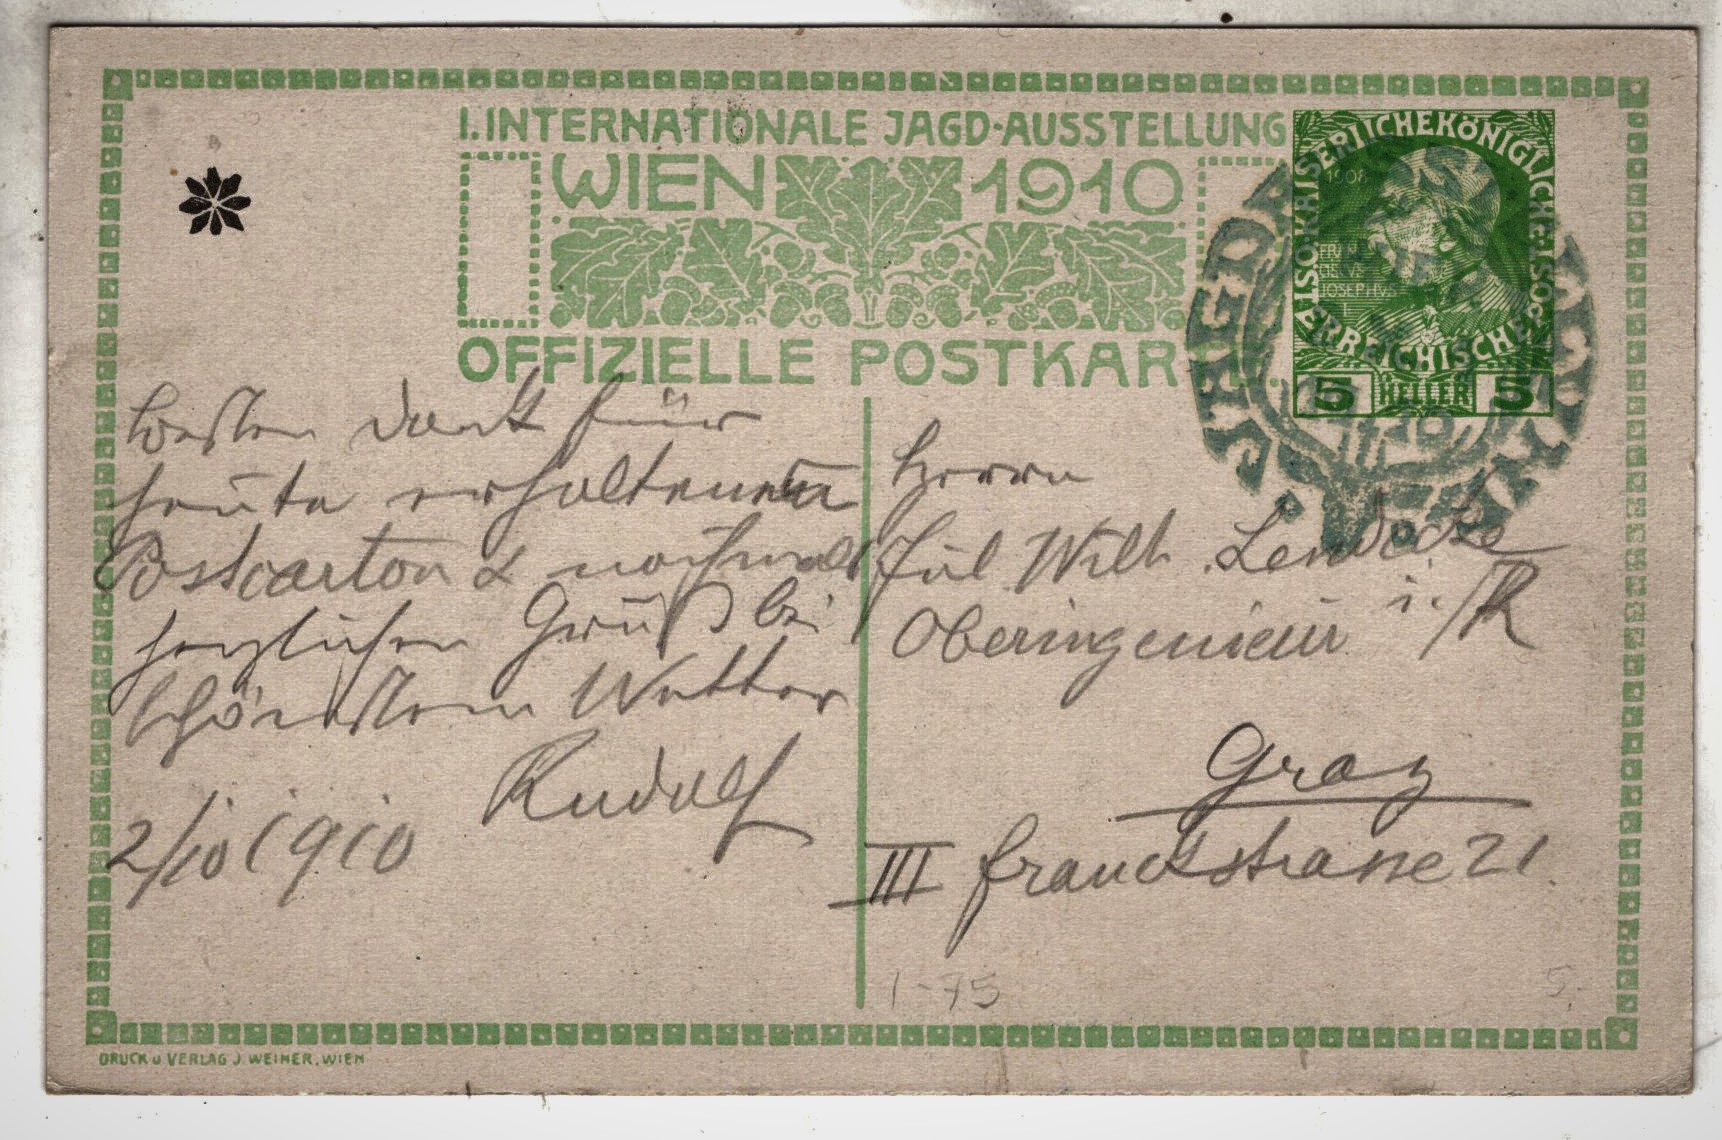 I. INTERNATIONALE JAGD-AUSSTELLUNG
WIEN 1910
OFFIZIELLE POSTKAR
KAISERLICHE KÖNIGLICHE ÖSTERREICHISCHE
1908
JOSEPHVS I
5 HELLER 5
JAGDA
Besten Dank für
heute erhaltenen
Postcarton & nochmals
herzlichen Gruß bei
schönstem Wetter
Rudolf
2/10 1910
Herrn
Jul. Wilh.
Oberingenieur i./R
Graz
III Franckstrasse 21.
1-75
5.
DRUCK u VERLAG J. WEINER, WIEN